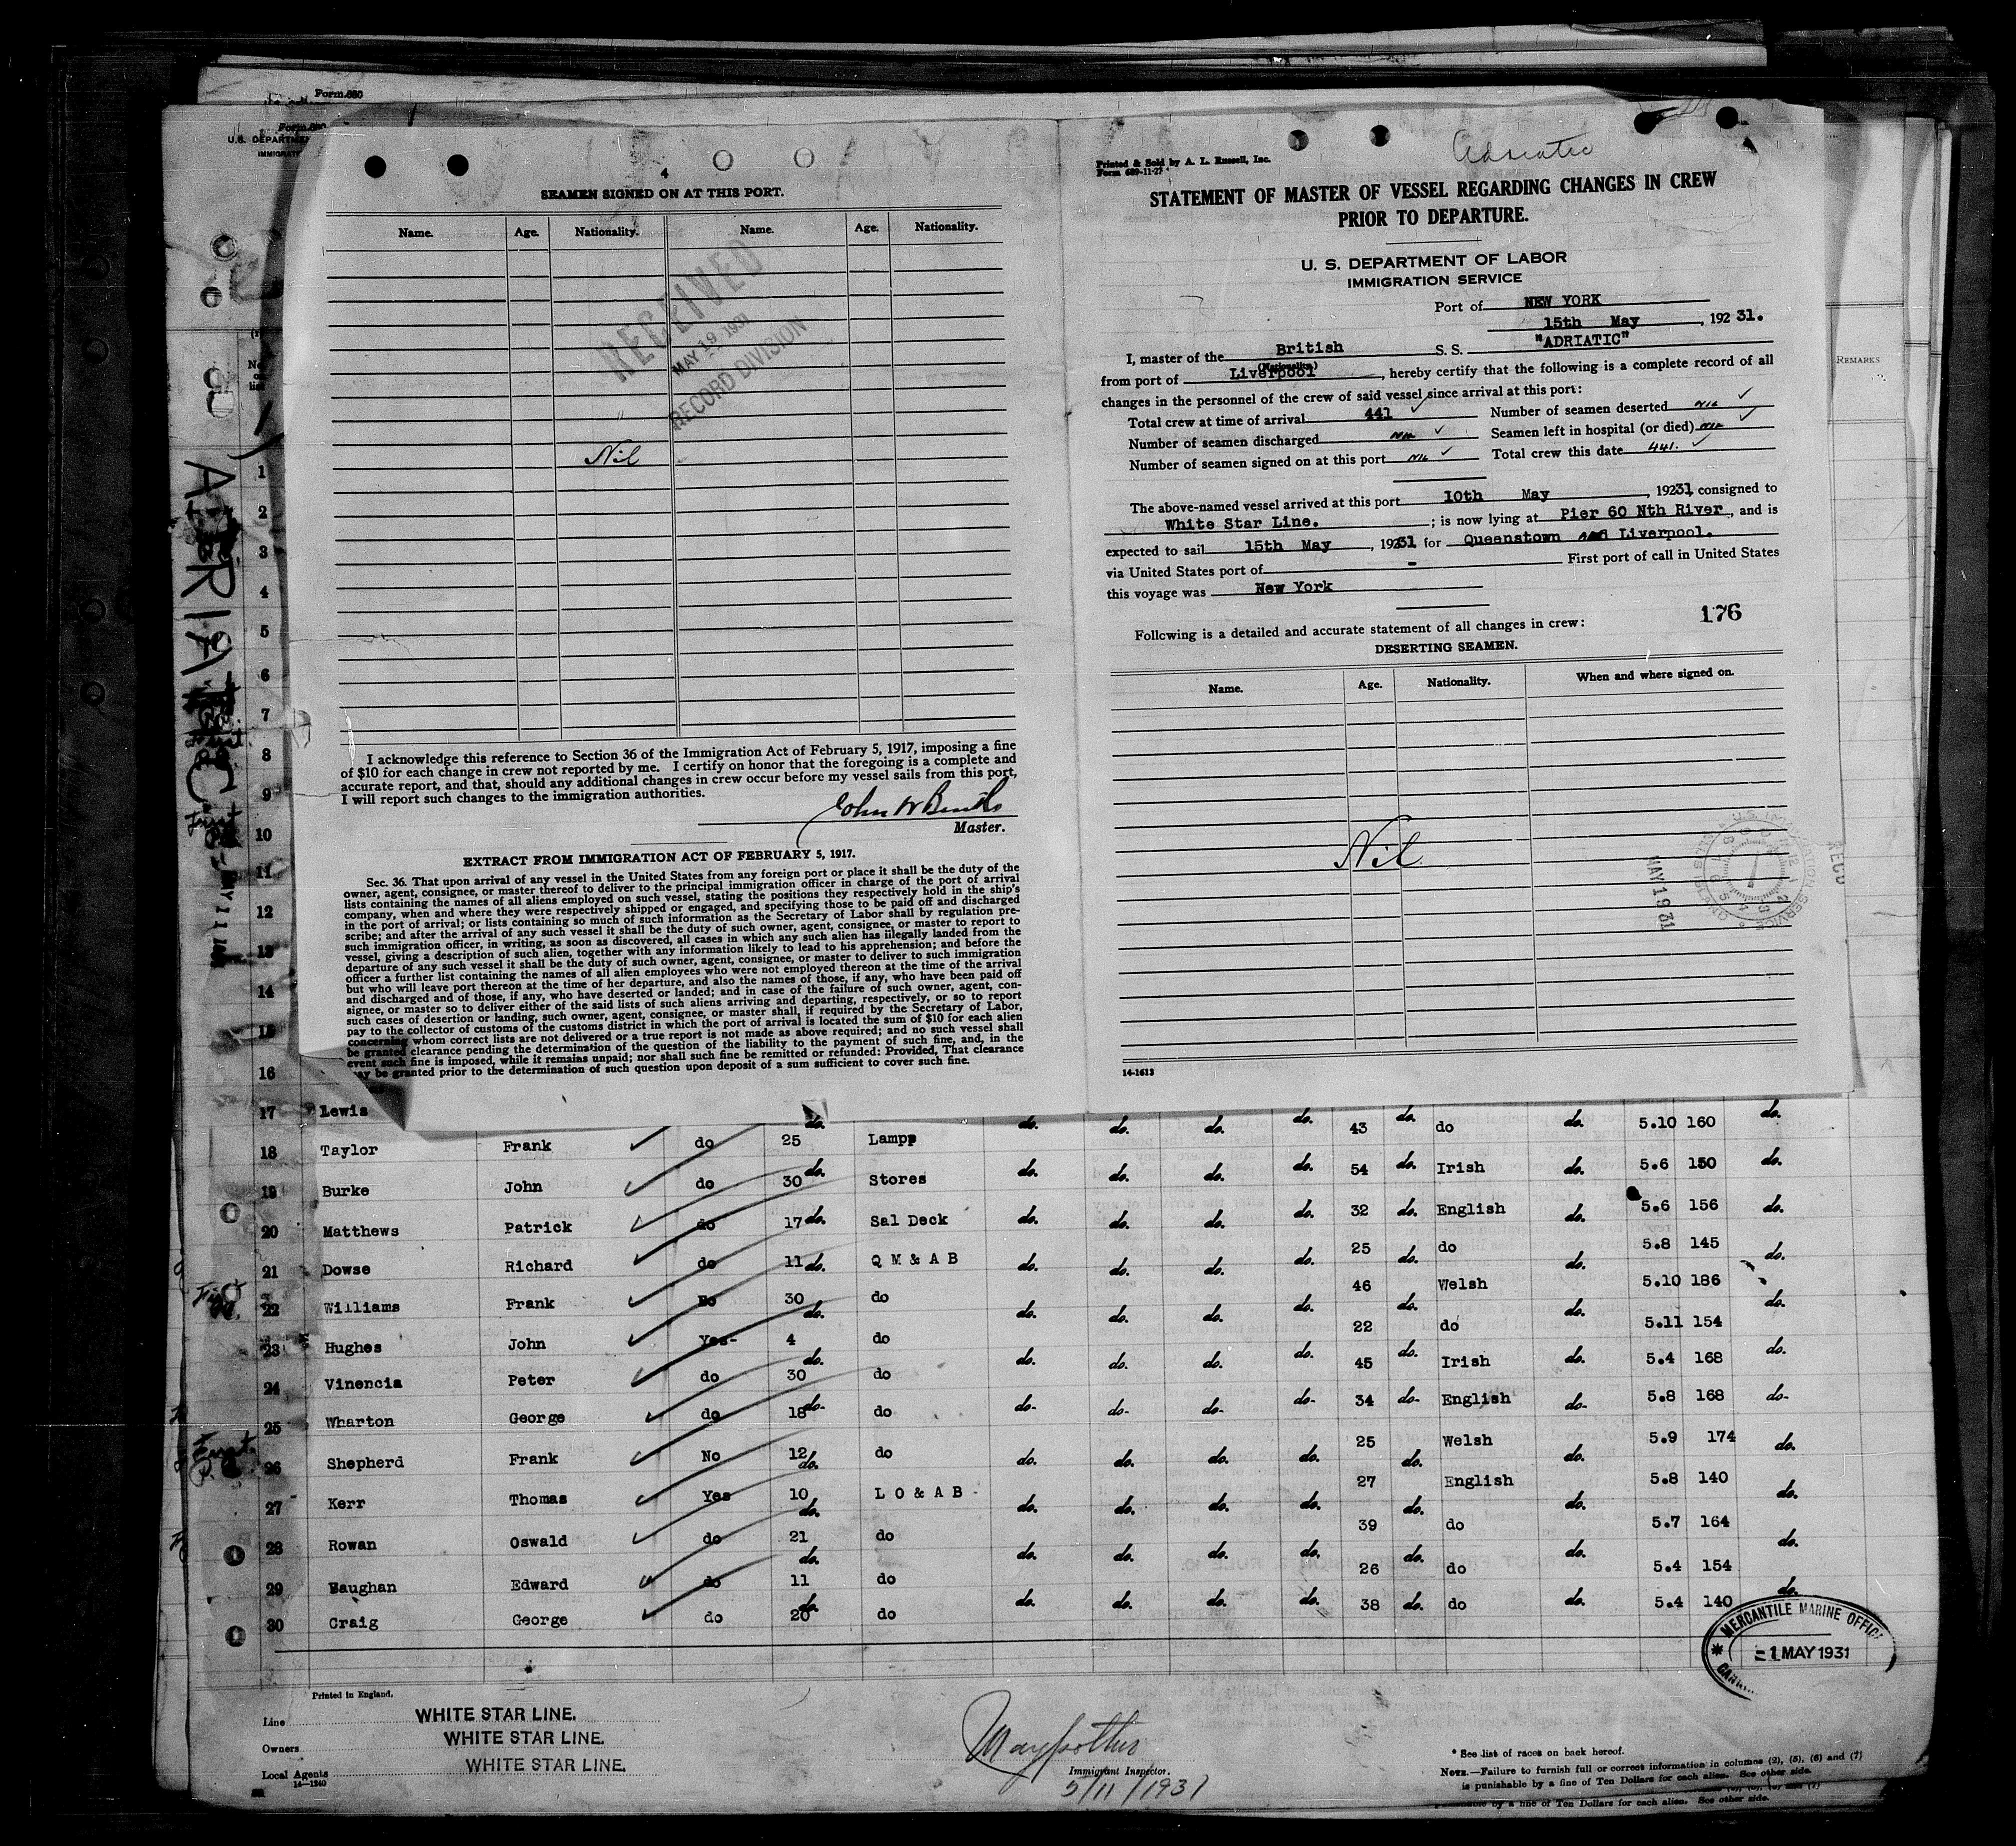 Form 680
Form 680
U.S. DEPARTME
IMMIGRAT
4
SEAMEN SIGNED ON AT THIS PORT.
Name. Age. Nationality. Name. Age. Nationality.
RECEIVED
MAY 19 1931
RECORD DIVISION
Nil
I acknowledge this reference to Section 36 of the Immigration Act of February 5, 1917, imposing a fine
of $10 for each change in crew not reported by me. I certify on honor that the foregoing is a complete and
accurate report, and that, should any additional changes in crew occur before my vessel sails from this port,
I will report such changes to the immigration authorities.
John W Binks
Master.
EXTRACT FROM IMMIGRATION ACT OF FEBRUARY 5, 1917.
Sec. 36. That upon arrival of any vessel in the United States from any foreign port or place it shall be the duty of the
owner, agent, consignee, or master thereof to deliver to the principal immigration officer in charge of the port of arrival
lists containing the names of all aliens employed on such vessel, stating the positions they respectively hold in the ship's
company, when and where they were respectively shipped or engaged, and specifying those to be paid off and discharged
in the port of arrival; or lists containing so much of such information as the Secretary of Labor shall by regulation pre-
scribe; and after the arrival of any such vessel it shall be the duty of such owner, agent, consignee, or master to report to
such immigration officer, in writing, as soon as discovered, all cases in which any such alien has illegally landed from the
vessel, giving a description of such alien, together with any information likely to lead to his apprehension; and before the
departure of any such vessel it shall be the duty of such owner, agent, consignee, or master to deliver to such immigration
officer a further list containing the names of all alien employees who were not employed thereon at the time of the arrival
but who will leave port thereon at the time of her departure, and also the names of those, if any, who have been paid off
and discharged and of those, if any, who have deserted or landed; and in case of the failure of such owner, agent, con-
signee, or master so to deliver either of the said lists of such aliens arriving and departing, respectively, or so to report
such cases of desertion or landing, such owner, agent, consignee, or master shall, if required by the Secretary of Labor,
pay to the collector of customs of the customs district in which the port of arrival is located the sum of $10 for each alien
concerning whom correct lists are not delivered or a true report is not made as above required; and no such vessel shall
be granted clearance pending the determination of the question of the liability to the payment of such fine, and, in the
event such fine is imposed, while it remains unpaid; nor shall such fine be remitted or refunded: Provided, That clearance
may be granted prior to the determination of such question upon deposit of a sum sufficient to cover such fine.
Adriatic
Printed & Sold by A. L. Russell, Inc.
Form 689-11-27
STATEMENT OF MASTER OF VESSEL REGARDING CHANGES IN CREW
PRIOR TO DEPARTURE.
U. S. DEPARTMENT OF LABOR
IMMIGRATION SERVICE
Port of NEW YORK
15th May, 192 31.
I, master of the British S. S. "ADRIATIC"
(Nationality)
from port of Liverpool, hereby certify that the following is a complete record of all
changes in the personnel of the crew of said vessel since arrival at this port:
Total crew at time of arrival 441 ✓ Number of seamen deserted Nil ✓
Number of seamen discharged Nil ✓ Seamen left in hospital (or died) Nil ✓
Number of seamen signed on at this port Nil ✓ Total crew this date 441. ✓
The above-named vessel arrived at this port 10th May, 19231, consigned to
White Star Line. ; is now lying at Pier 60 Nth River, and is
expected to sail 15th May, 19231 for Queenstown and Liverpool.
via United States port of - First port of call in United States
this voyage was New York
176
Following is a detailed and accurate statement of all changes in crew:
DESERTING SEAMEN.
Name. Age. Nationality. When and where signed on.
Nil
MAY 19 31
14-1613
REMARKS
ADRIATIC
1
2
3
4
5
6
7
8
9
10
11
12
13
14
15
16
17 Lewis do. do. do. do. do. 43 do. do do. 5.10 160 do.
18 Taylor Frank do 25 do. Lampp do. do. do. do. 54 do. Irish do. 5.6 150 do.
19 Burke John do 30 do. Stores do. do. do. do. 32 do. English do. 5.6 156 do.
20 Matthews Patrick do 17 do. Sal Deck do. do. do. do. 25 do. do do. 5.8 145 do.
21 Dowse Richard do 11 do. Q M & A B do. do. do. do. 46 do. Welsh do. 5.10 186 do.
22 Williams Frank No 30 do. do do. do. do. do. 22 do. do do. 5.11 154 do.
23 Hughes John Yes- 4 do. do do. do. do. do. 45 do. Irish do. 5.4 168 do.
24 Vinencia Peter do 30 do- do do- do- do- do- 34 do- English do- 5.8 168 do-
25 Wharton George do 18 do. do do. do. do. do. 25 do. Welsh do. 5.9 174 do.
26 Shepherd Frank No 12 do. do do. do. do. do. 27 do. English do. 5.8 140 do.
27 Kerr Thomas Yes 10 do. L O & A B do. do. do. do. 39 do. do do. 5.7 164 do.
28 Rowan Oswald do 21 do. do do. do. do. do. 26 do. do do. 5.4 154 do.
29 Vaughan Edward do 11 do. do do. do. do. do. 38 do. do do. 5.4 140 do.
30 Craig George do 20 do
MERCANTILE MARINE OFFICE
-1 MAY 1931
Printed in England.
Line WHITE STAR LINE.
Owners WHITE STAR LINE.
Local Agents WHITE STAR LINE.
14-1240
Immigrant Inspector.
5/11/1931
* See list of races on back hereof.
NOTE.—Failure to furnish full or correct information in columns (2), (5), (6) and (7)
is punishable by a fine of Ten Dollars for each alien. See other side.
by a fine of Ten Dollars for each alien. See other side.